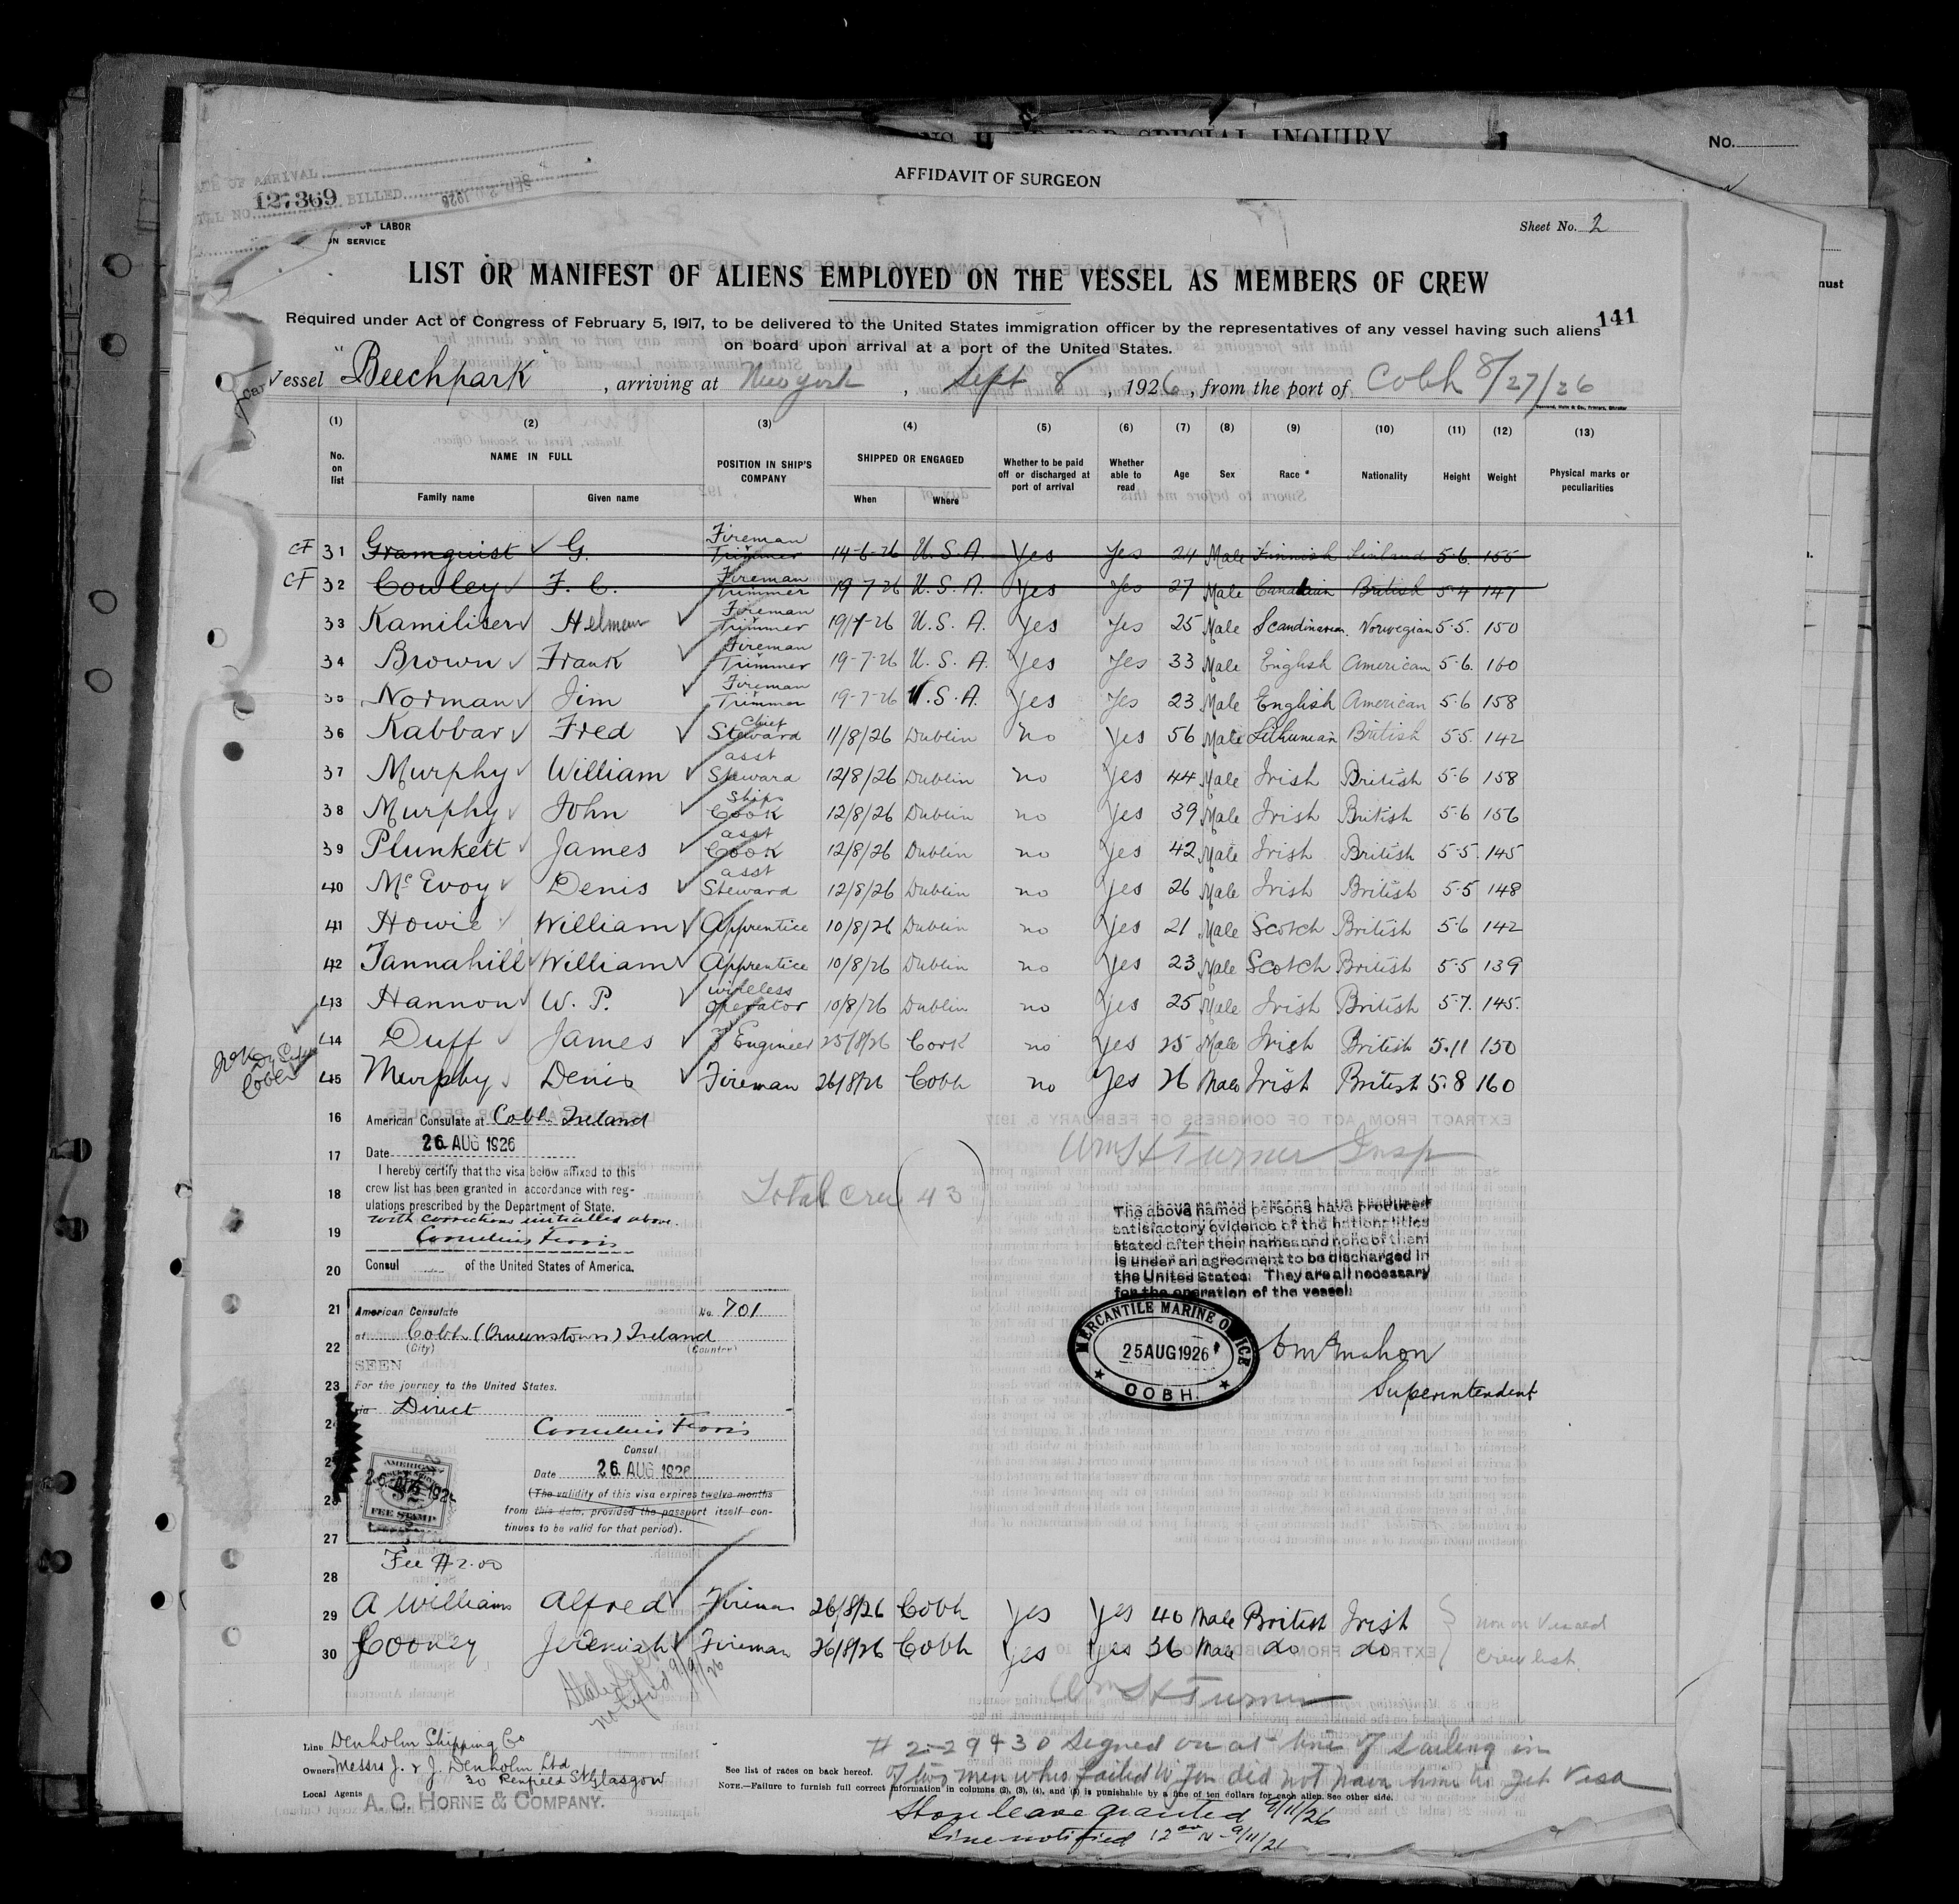 FOR SPECIAL INQUIRY
No.
AFFIDAVIT OF SURGEON
OF ARRIVAL
127369 BILLED SEP 1926
OF LABOR
ON SERVICE
Sheet No. 2
LIST OR MANIFEST OF ALIENS EMPLOYED ON THE VESSEL AS MEMBERS OF CREW
141
Required under Act of Congress of February 5, 1917, to be delivered to the United States immigration officer by the representatives of any vessel having such aliens
on board upon arrival at a port of the United States.
Vessel "Beechpark", arriving at New York, Sept 8, 1926, from the port of Cobh 8/27/26
(1) (2) (3) (4) (5) (6) (7) (8) (9) (10) (11) (12) (13)
No. on list NAME IN FULL Family name Given name POSITION IN SHIP'S COMPANY SHIPPED OR ENGAGED When Where Whether to be paid off or discharged at port of arrival Whether able to read Age Sex Race * Nationality Height Weight Physical marks or peculiarities
CF 31 Gramquist G. Fireman Trimmer 14-6-26 U.S.A. Yes Yes 24 Male Finnish Finland 5-6. 155
CF 32 Cowley F. C. Fireman Trimmer 19-7-26 U.S.A. Yes Yes 27 Male Canadian British 5-4 147
33 Kamiliser Helman Fireman Trimmer 19/7-26 U.S.A. Yes Yes 25 Male Scandinavian. Norwegian 5-5. 150
34 Brown Frank Fireman Trimmer 19-7-26 U.S.A. Yes Yes 33 Male English American 5-6. 160
35 Norman Jim Fireman Trimmer 19-7-26 U.S.A. Yes Yes 23 Male English American 5-6 158
36 Kabbar Fred Chief Steward 11/8/26 Dublin no Yes 56 Male British 5-5. 142
37 Murphy William asst Steward 12/8/26 Dublin no Yes 44 Male Irish British 5-6 158
38 Murphy John Ships Cook 12/8/26 Dublin no Yes 39 Male Irish British 5-6 156
39 Plunkett James asst Cook 12/8/26 Dublin no Yes 42 Male Irish British 5-5. 145
40 McEvoy Denis asst Steward 12/8/26 Dublin no Yes 26 Male Irish British 5-5 148
41 Howie William Apprentice 10/8/26 Dublin no Yes 21 Male Scotch British 5-6 142
42 Tannahill William Apprentice 10/8/26 Dublin no Yes 23 Male Scotch British 5-5 139
43 Hannon W. P. wireless operator 10/8/26 Dublin no Yes 25 Male Irish British 5-7. 145.
44 Duff James 3 Engineer 25/8/26 Cork no Yes 25 Male Irish British 5.11 150
45 Murphy Denis Fireman 26/8/26 Cobh no Yes 26 Male Irish British 5.8 160
16 American Consulate at Cobh Ireland
17 Date 26 AUG 1926
Wm H Turner Insp
I hereby certify that the visa below affixed to this
18 crew list has been granted in accordance with reg-
ulations prescribed by the Department of State.
with corrections initialled above.
19 Cornelius Ferris
20 Consul of the United States of America.
Total crew 43
The above named persons have produced
satisfactory evidence of the nationalities
stated after their names and none of them
is under an agreement to be discharged in
the United States. They are all necessary
for the operation of the vessel.
21 American Consulate No. 701
22 at Cobh (Queenstown) Ireland
(City) (Country)
SEEN
23 For the journey to the United States.
24 via Direct
Cornelius Ferris
25 Consul
Date 26 AUG 1926
26 (The validity of this visa expires twelve months
from this date, provided the passport itself con-
27 tinues to be valid for that period).
AMERICAN
26 AUG 1926
FEE STAMP
MERCANTILE MARINE OFFICE
25 AUG 1926
COBH.
McMahon
Superintendent
Fee $2.00
28
29 A Williams Alfred Fireman 26/8/26 Cobh Yes Yes 40 Male British Irish
30 Cooney Jeremiah Fireman 26/8/26 Cobh Yes Yes 36 Male do do
non on Visaed
crew list.
State Dept
notified 9/9/26
Wm H Turner
Line Denholm Shipping Co
Owners Messrs J. & J. Denholm Ltd
30 Renfield St Glasgow
Local Agents A. C. HORNE & COMPANY.
# 2-29 & 30 signed on at time of sailing in
of two men who failed to join did not have time to get visa
See list of races on back hereof.
NOTE.—Failure to furnish full correct information in columns (2), (3), (4), and (5) is punishable by a fine of ten dollars for each alien. See other side.
Shore leave granted 9/11/26
Line notified 12